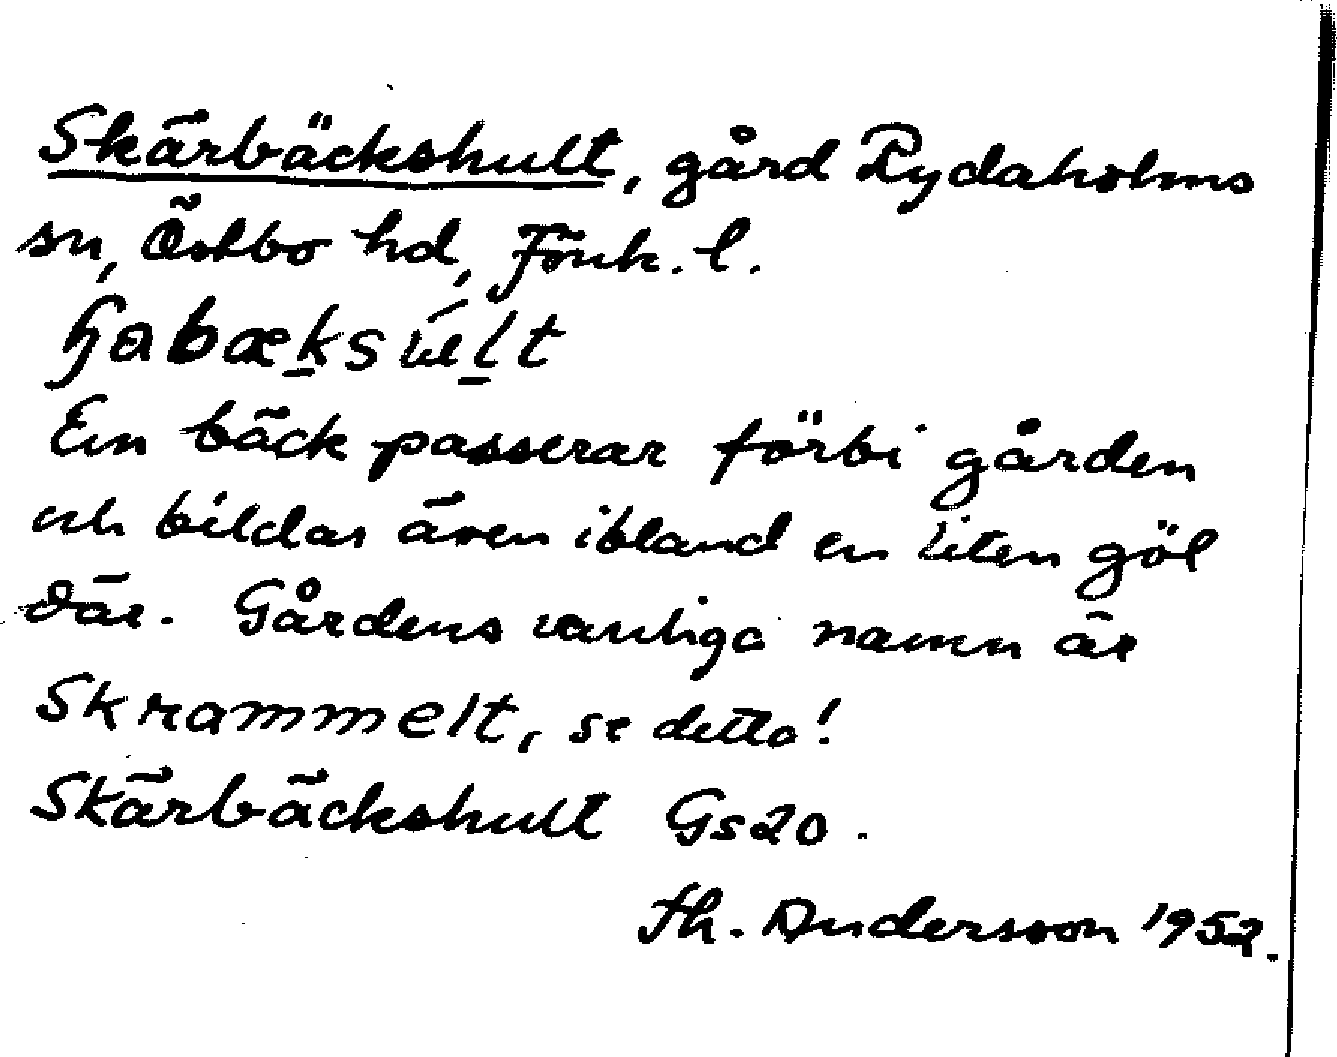 Skärbäckshult, gård Rydaholms
sn, Östbo hd, Jönk. l.
En bäck passerar förbi gården
och bildas även ibland en liten göl
där. Gårdens vanliga namn är
Skrammelt, se detta!
Skärbäckshult Gs20.
Th. Andersson 1952.